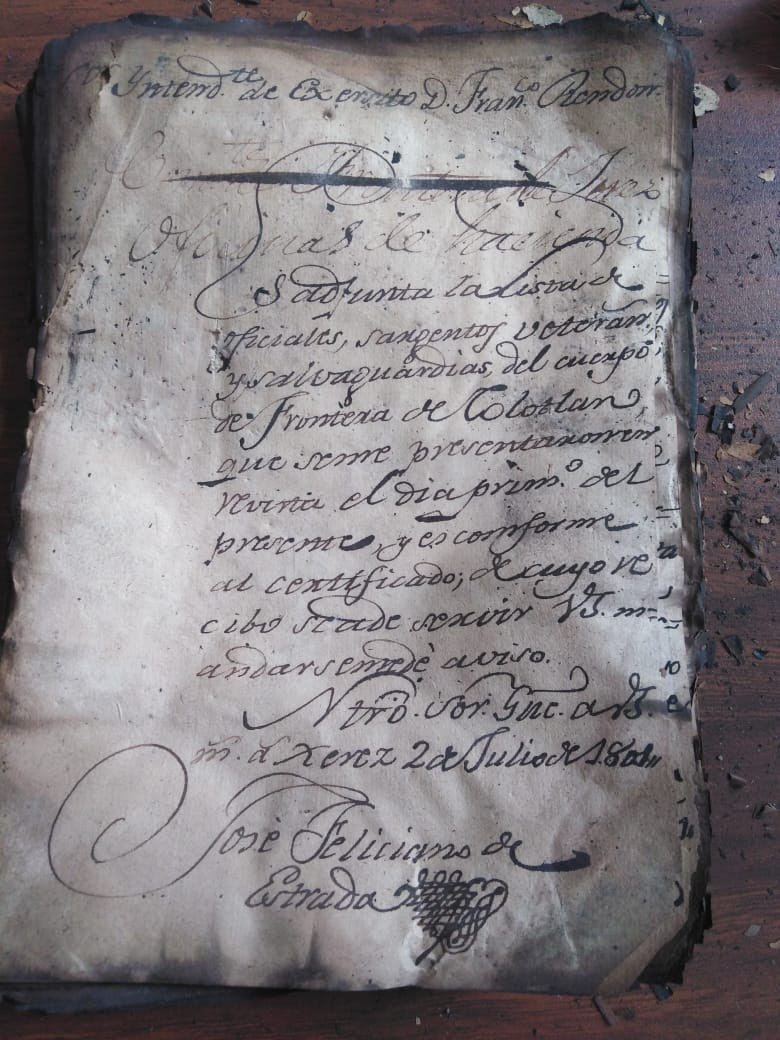 Yntend.te de Exercito D. Fran.co Rendon.
de Xerez
Oficinas de hacienda
S adjunta la Lista de
oficiales, sargentos veteran,
y salvaguardias, del cuerpo
de Frontera de Colotlan,
que seme presentaron en
revista el dia prim.o del
presente, y es comforme
al centificado; de cuyo re
cibo seade servir VS. m=
andarsemedè aviso.
Ntrô. Sor. Gue. a VS.
m. a.s Xerez 2 de Julio de 1801
Josè Feliciano de
Estrada